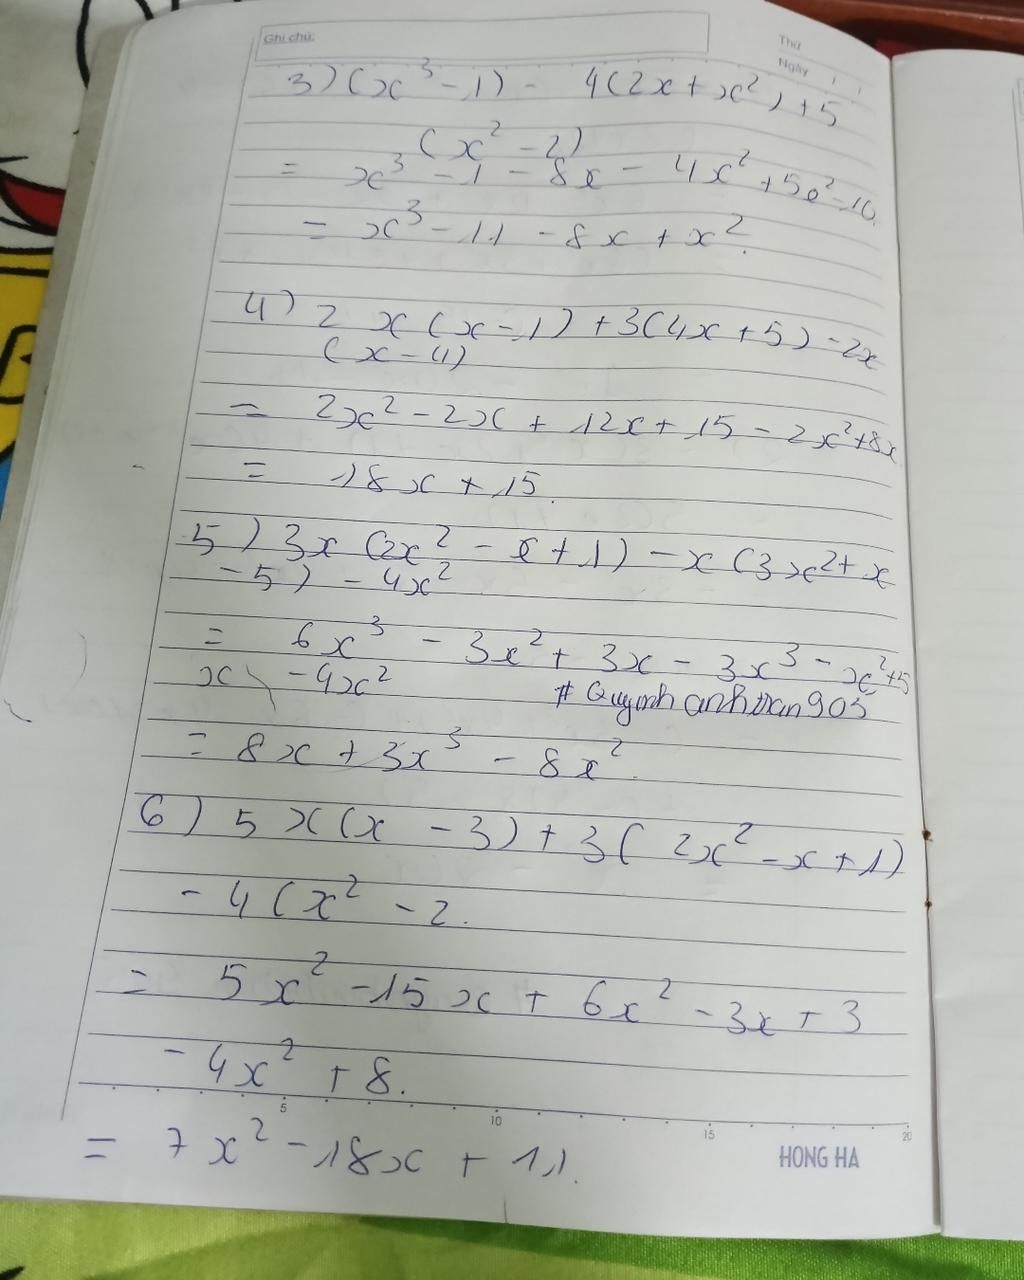 Ghi chú:
Thứ
Ngày / /
3) (x³ - 1) - 4(2x + x²) + 5
(x² - 2)
= x³ - 1 - 8x - 4x² + 5x² - 10
= x³ - 11 - 8x + x².
4) 2x(x - 1) + 3(4x + 5) - 2x
(x - 4)
= 2x² - 2x + 12x + 15 - 2x² + 8x
= 18x + 15.
5) 3x(2x² - x + 1) - x(3x² + x
- 5) - 4x²
= 6x³ - 3x² + 3x - 3x³ - x² + 5
x - 4x²
# Quynh anh tran 903
= 8x + 3x³ - 8x².
6) 5x(x - 3) + 3(2x² - x + 1)
- 4(x² - 2.
= 5x² - 15x + 6x² - 3x + 3
- 4x² + 8.
5 10 15 20
= 7x² - 18x + 11.
HONG HA